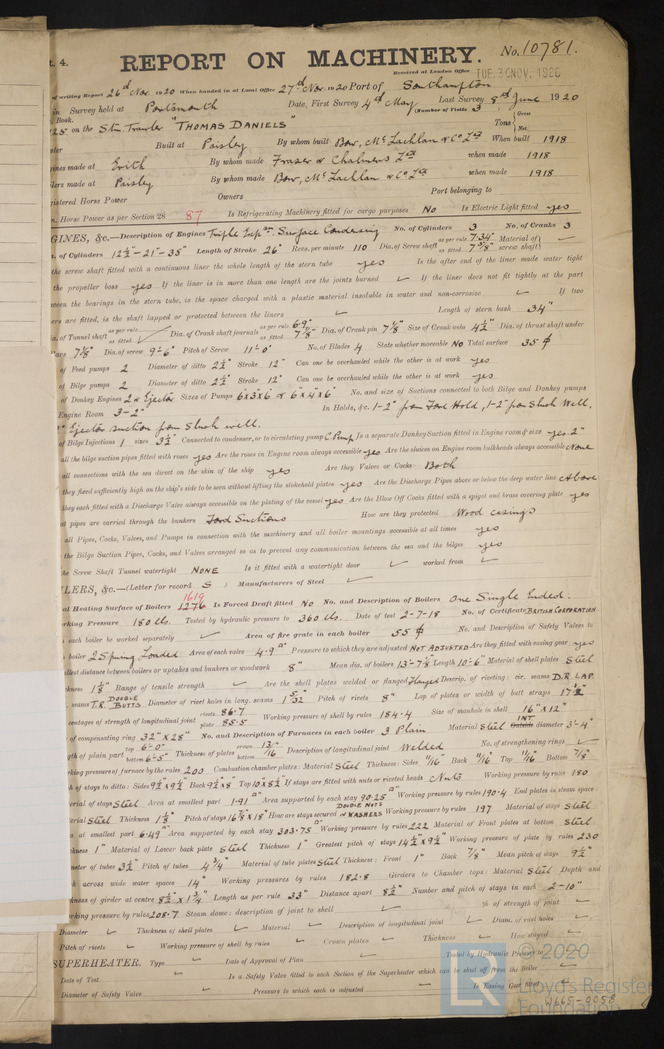 t. 4.
REPORT ON MACHINERY. No. 10781.
Received at London Office TUE. 30 NOV. 1920
of writing Report 26th Nov. 1920 When handed in at Local Office 27th Nov. 1920 Port of Southampton
in Survey held at Portsmouth Date, First Survey 4th May Last Survey 8th June 1920
Book. (Number of Visits 3
25 on the Stm. Trawler "THOMAS DANIELS" Tons Gross Net
Built at Paisley By whom built Bow, McLachlan & Co Ltd When built 1918
ines made at Erith By whom made Fraser & Chalmers Ltd when made 1918
lers made at Paisley By whom made Bow, McLachlan & Co Ltd when made 1918
istered Horse Power Owners Port belonging to
n. Horse Power as per Section 28 87 Is Refrigerating Machinery fitted for cargo purposes No Is Electric Light fitted yes
GINES, &c.—Description of Engines Triple Expn. Surface Condensing No. of Cylinders 3 No. of Cranks 3
. of Cylinders 12½"–21"–35" Length of Stroke 26" Revs. per minute 110 Dia. of Screw shaft as per rule 7.34" as fitted 7⅝" Material of screw shaft
the screw shaft fitted with a continuous liner the whole length of the stern tube yes Is the after end of the liner made water tight
the propeller boss yes If the liner is in more than one length are the joints burned ✓ If the liner does not fit tightly at the part
ween the bearings in the stern tube, is the space charged with a plastic material insoluble in water and non-corrosive ✓ If two
ers are fitted, is the shaft lapped or protected between the liners ✓ Length of stern bush 34"
. of Tunnel shaft as per rule as fitted ✓ Dia. of Crank shaft journals as per rule 6.9" as fitted 7⅛" Dia. of Crank pin 7⅛" Size of Crank webs 4½" Dia. of thrust shaft under
ars 7⅛" Dia. of screw 9'-6" Pitch of Screw 11'-0" No. of Blades 4 State whether moveable No Total surface 35
of Feed pumps 2 Diameter of ditto 2½" Stroke 12" Can one be overhauled while the other is at work yes
of Bilge pumps 2 Diameter of ditto 2½" Stroke 12" Can one be overhauled while the other is at work yes
of Donkey Engines 2 & Ejector Sizes of Pumps 6x3x6 & 6x4x6 No. and size of Suctions connected to both Bilge and Donkey pumps
Engine Room 3-2" In Holds, &c. 1-2" from Ford Hold, 1-2" from Slush Well.
Ejector suction from slush well.
of Bilge Injections 1 sizes 3½" Connected to condenser, or to circulating pump C Pump Is a separate Donkey Suction fitted in Engine room & size yes 2"
all the bilge suction pipes fitted with roses yes Are the roses in Engine room always accessible yes Are the sluices on Engine room bulkheads always accessible None
all connections with the sea direct on the skin of the ship yes Are they Valves or Cocks Both
they fixed sufficiently high on the ship's side to be seen without lifting the stokehold plates yes Are the Discharge Pipes above or below the deep water line Above
they each fitted with a Discharge Valve always accessible on the plating of the vessel yes Are the Blow Off Cocks fitted with a spigot and brass covering plate yes
at pipes are carried through the bunkers Ford Suctions How are they protected Wood casings
all Pipes, Cocks, Valves, and Pumps in connection with the machinery and all boiler mountings accessible at all times yes
the Bilge Suction Pipes, Cocks, and Valves arranged so as to prevent any communication between the sea and the bilges yes
he Screw Shaft Tunnel watertight NONE Is it fitted with a watertight door ✓ worked from ✓
ILERS, &c.—(Letter for record S ) Manufacturers of Steel ✓
al Heating Surface of Boilers 1619 1276 Is Forced Draft fitted No No. and Description of Boilers One Single Ended.
rking Pressure 180 lbs. Tested by hydraulic pressure to 360 lbs. Date of test 2-7-18 No. of Certificate BRITISH CORPORATION
each boiler be worked separately ✓ Area of fire grate in each boiler 55 No. and Description of Safety Valves to
boiler 2 Spring Loaded Area of each valve 4.9 Pressure to which they are adjusted NOT ADJUSTED Are they fitted with easing gear yes
llest distance between boilers or uptakes and bunkers or woodwork 8" Mean dia. of boilers 13'-7⅞ Length 10'-6" Material of shell plates Steel
kness 1⅛" Range of tensile strength ✓ Are the shell plates welded or flanged Flanged Descrip. of riveting: cir. seams D.R. LAP
. seams DOUBLE T.R. BUTTS Diameter of rivet holes in long. seams 1 5/32 Pitch of rivets 8" Lap of plates or width of butt straps 17½"
centages of strength of longitudinal joint rivets 86.7 plate 85.5 Working pressure of shell by rules 184.4 Size of manhole in shell 16" x 12"
of compensating ring 32" x 28" No. and Description of Furnaces in each boiler 3 Plain Material Steel INT. Outside diameter 3'-4"
gth of plain part top 6'-0" bottom 6'-5" Thickness of plates crown 13/16" bottom Description of longitudinal joint Welded No. of strengthening rings ✓
rking pressure of furnace by the rules 200 Combustion chamber plates: Material Steel Thickness: Sides 11/16 Back 11/16 Top 11/16 Bottom 7/8"
h of stays to ditto: Sides 9½x9½ Back 9½x8" Top 10x8½ If stays are fitted with nuts or riveted heads Nuts Working pressure by rules 180
erial of stays Steel Area at smallest part 1.91 Area supported by each stay 90.25 Working pressure by rules 190.4 End plates in steam space:
rial Steel Thickness 1⅛" Pitch of stays 16⅞x18" How are stays secured DOUBLE NUTS & WASHERS Working pressure by rules 197 Material of stays Steel
a at smallest part 6.49 Area supported by each stay 303.75 Working pressure by rules 222 Material of Front plates at bottom Steel
kness 1" Material of Lower back plate Steel Thickness 1" Greatest pitch of stays 14½x9½" Working pressure of plate by rules 230
meter of tubes 3½" Pitch of tubes 4¾" Material of tube plates Steel Thickness: Front 1" Back 7/8" Mean pitch of stays 9½"
h across wide water spaces 14" Working pressures by rules 182.8 Girders to Chamber tops: Material Steel Depth and
kness of girder at centre 8½" x 1¾" Length as per rule 33" Distance apart 8½" Number and pitch of stays in each 2-10"
rking pressure by rules 208.7 Steam dome: description of joint to shell ✓ % of strength of joint ✓
Diameter ✓ Thickness of shell plates ✓ Material ✓ Description of longitudinal joint ✓ Diam. of rivet holes ✓
Pitch of rivets ✓ Working pressure of shell by rules ✓ Crown plates ✓ Thickness ✓ How stayed ✓
SUPERHEATER. Type ✓ Date of Approval of Plan ✓ Tested by Hydraulic Pressure to
Date of Test ✓ Is a Safety Valve fitted to each Section of the Superheater which can be shut off from the Boiler ✓
Diameter of Safety Valve ✓ Pressure to which each is adjusted ✓ Is Easing Gear fitted ✓
W665-0058
LR © 2020
Lloyd's Register
Foundation